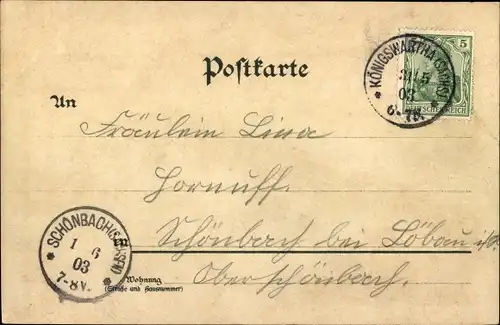 Postkarte
5
DEUTSCHES REICH
KÖNIGSWARTHA (SACHS)
31/5
03
6-7N.
An
Fräulein Lina
Hornuff.
in Schönbach bei Löbau i/S.
Oberschönbach.
Wohnung
(Straße und Hausnummer)
SCHÖNBACH (SACHS)
1 6
03
7-8V.